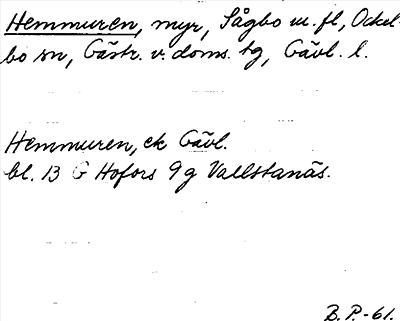 Hemmuren, myr, Sågbo m. fl, Ockel-
bo sn, Gästr. v. doms. tg, Gävl. l.
Hemmuren, ek Gävl.
bl. 13 G Hofors 9 g Vallstanäs.
B.P.-61.